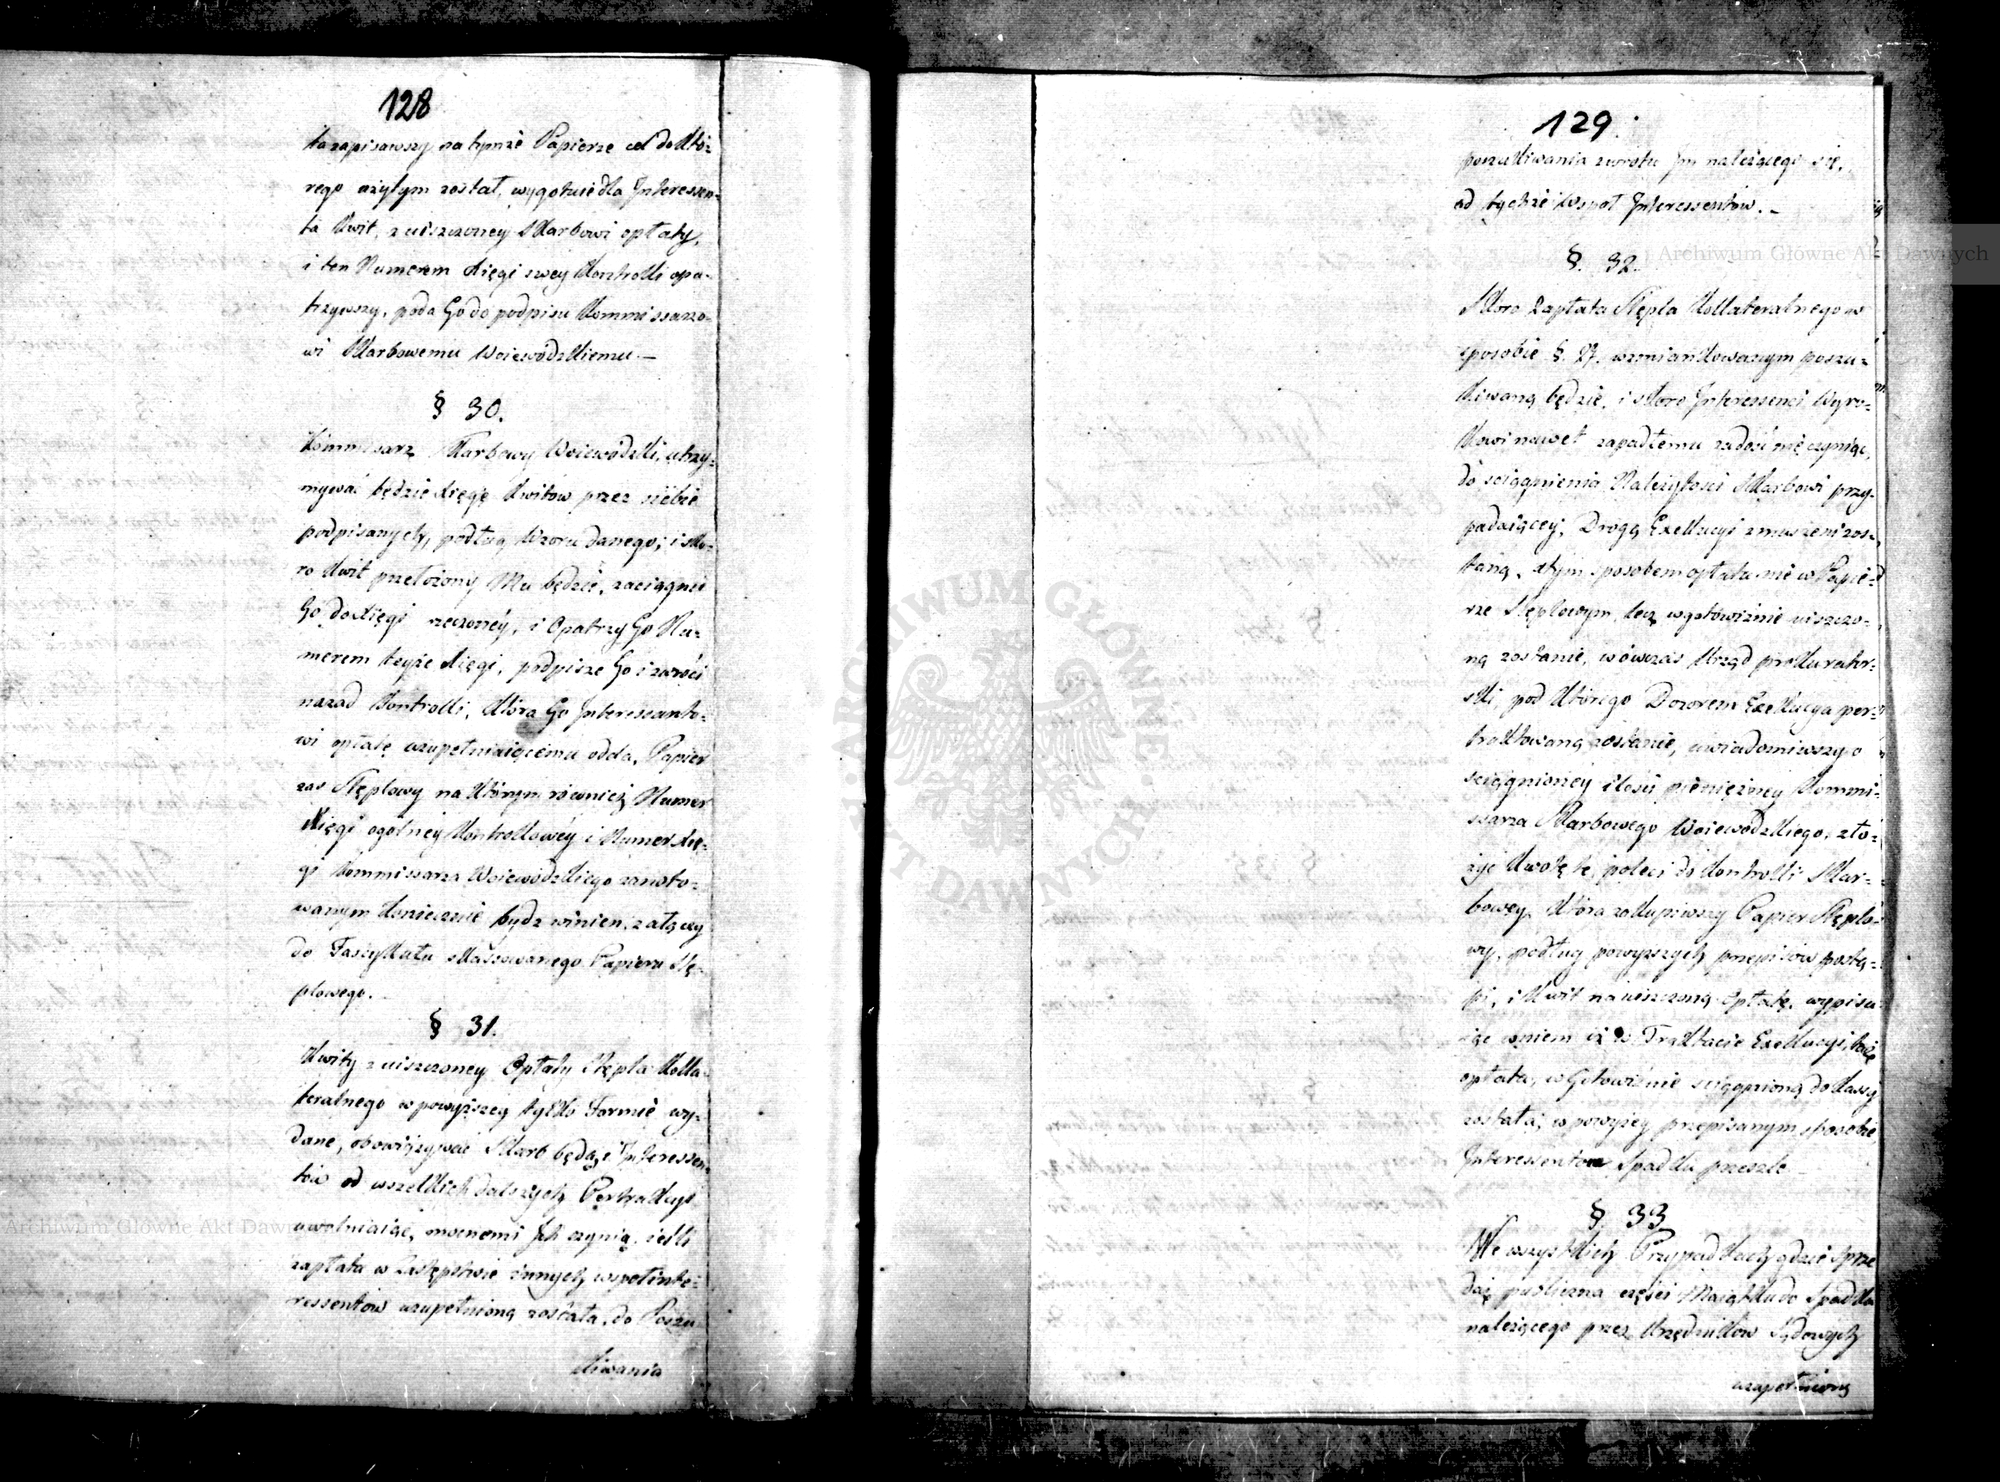 128
ta zapisawszy na tymże Papierze cel do któ-
rego użytym został, wygotuie dla Interessen-
ta kwit, z uiszczoney Skarbowi opłaty,
i ten Numerem Xięgi swey Kontrolli opa-
trzywszy, poda Go do podpisu Kommissarzo-
wi Skarbowemu Woiewódzkiemu.—
§ 30.
Kommissarz Skarbowy Woiewódzki, utrzy-
mywać będzie Xięgę Kwitów przez siebie
podpisanych, podług Wzoru danego; i sko-
ro Kwit przełożony Mu będzie, zaciągnie
Go do Xięgi rzeczoney, i Opatrzy Go Nu-
merem teyże Xięgi, podpisze Go i zwróci
nazad Kontrolli, która Go Interessanto-
wi opłatę uzupełniaiącemu odda, Papier
zaś Stęplowy na którym również Numer
Xięgi ogolney Kontrollowéy i Numer Xię-
gi Kommissarza Woiewódzkiego zanoto-
wanym koniecznie bydz winien, załączy
do Fascykułu skassowanego Papieru Stę-
plowego.
§ 31.
Kwity z uiszczoney Opłaty Stępla Kolla-
teralnego w powyższey tylko Formie wy-
dane, obowiązywać Skarb będą, i Interessen-
tów od wszelkich dalszych Pertrakcyi
uwalniaiąc, mocnemi Ich czynią, ieśli
zapłata w Zastępstwie innych wspołinte-
ressentów uzupełnioną została, do Poszu
kiwania
129.
poszukiwania zwrotu Im należącego się,
od tychże Wspoł Interessentów.—
§. 32.
Skoro Zapłata Stępla Kollateralnego w
sposobie §. 27. wzmiankowanym poszu-
kiwaną będzie, i skoro Interessenci Wyro-
kowi nawet zapadłemu zadość nie czyniąc,
do sciągnienia Należytości Skarbowi przy-
padaiącey, Drogą Exekucyi zmuszeni zos-
taną, a tym sposobem opłata nie w Papie-
rze Stęplowym, lecz w gotowiźnie uiszczo-
ną zostanie, wówczas Urząd prokurator-
ski, pod którego Dozorem Exekucya per-
traktowaną zostanie, uwiadomiwszy o
sciągnioney ilości pieniężney Kommi-
ssarza Skarbowego Woiewódzkiego, zło-
żyć kwotę tę, poleci do Kontrolli Skar-
bowey, która zakupiwszy Papier Stęplo-
wy, podług powyższych przepisów postą-
pi, i Kwit na uiszczoną Opłatę, wypisu
iąc w niem iż w Traktacie Exekucyi, taż
opłata, w Gotowiźnie sciągnioną do Kassy
została; w powyżey przepisanym sposobie
Interessentom Spadku prześle.
§. 33
We wszystkich Przypadkach gdzie Sprze
daż publiczna części Maiątku do Spadku
należącego przez Urzędników Sądowych
uzupełnioną
Archiwum Główne Akt Dawnych
ARCHIWUM GŁÓWNE AKT DAWNYCH
Archiwum Główne Akt Dawn